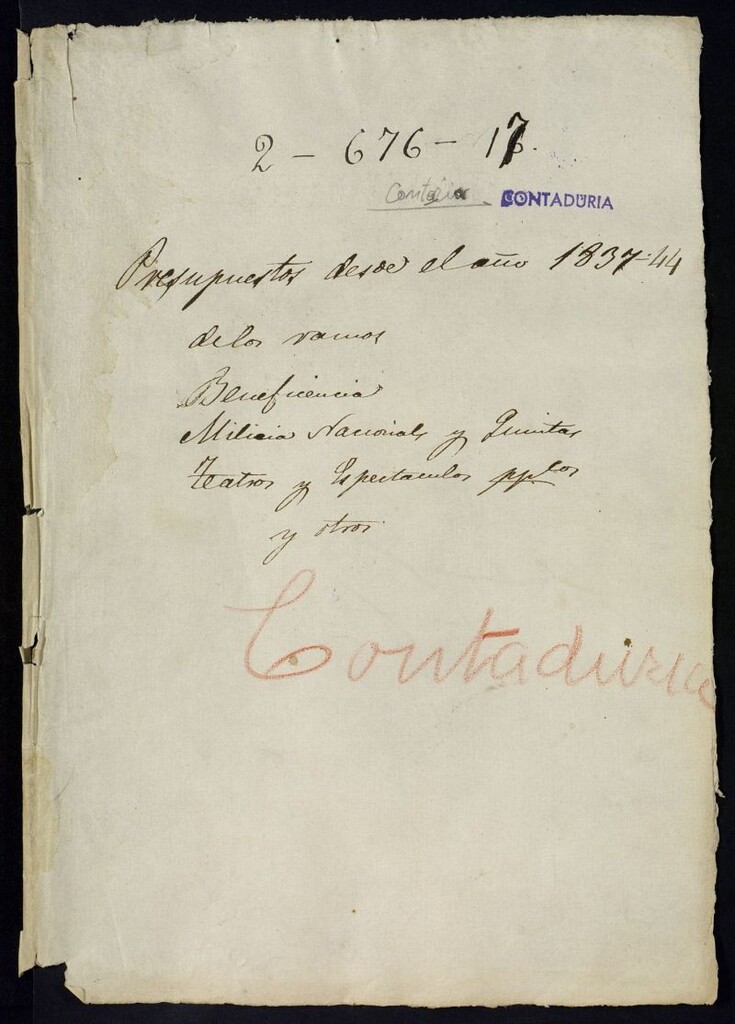 2 - 676 - 17.
CONTADURIA
Presupuestos desde el año 1837-44
de los ramos
Beneficencia
Milicia Nacional y Quintas
Teatros y Espectaculos ppcos
y otros
Contaduria